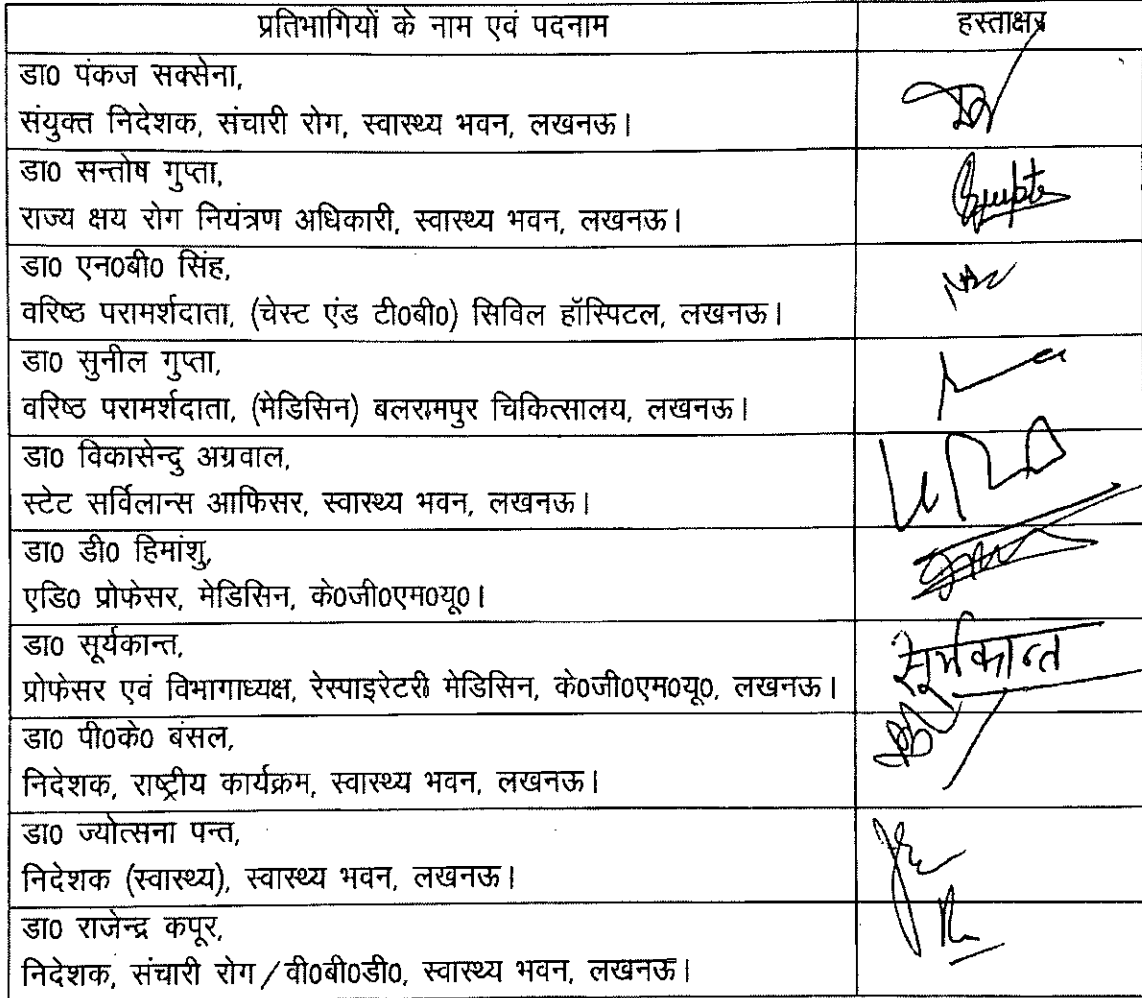 प्रतिभागियों के नाम एवं पदनाम
हस्ताक्षर
डा0 पंकज सक्सेना,
संयुक्त निदेशक, संचारी रोग, स्वास्थ्य भवन, लखनऊ।
डा0 सन्तोष गुप्ता,
राज्य क्षय रोग नियंत्रण अधिकारी, स्वास्थ्य भवन, लखनऊ।
Gupta
डा0 एन0बी0 सिंह,
वरिष्ठ परामर्शदाता, (चेस्ट एंड टी0बी0) सिविल हॉस्पिटल, लखनऊ।
डा0 सुनील गुप्ता,
वरिष्ठ परामर्शदाता, (मेडिसिन) बलरामपुर चिकित्सालय, लखनऊ।
डा0 विकासेन्दु अग्रवाल,
स्टेट सर्विलान्स आफिसर, स्वास्थ्य भवन, लखनऊ।
डा0 डी0 हिमांशु,
एडि0 प्रोफेसर, मेडिसिन, के0जी0एम0यू0।
डा0 सूर्यकान्त,
प्रोफेसर एवं विभागाध्यक्ष, रेस्पाइरेटरी मेडिसिन, के0जी0एम0यू0, लखनऊ।
सूर्यकान्त
डा0 पी0के0 बंसल,
निदेशक, राष्ट्रीय कार्यक्रम, स्वास्थ्य भवन, लखनऊ।
डा0 ज्योत्सना पन्त,
निदेशक (स्वास्थ्य), स्वास्थ्य भवन, लखनऊ।
डा0 राजेन्द्र कपूर,
निदेशक, संचारी रोग/वी0बी0डी0, स्वास्थ्य भवन, लखनऊ।